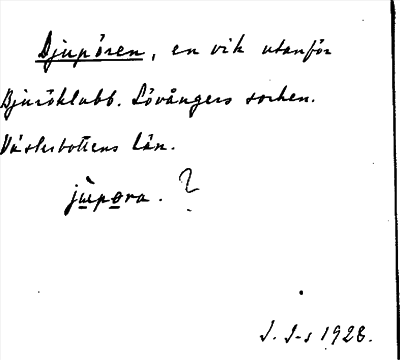 Djupören, en vik utanför
Bjuröklubb. Lövångers socken.
Västerbottens län.
jùpora. ?
J. J-s 1928.